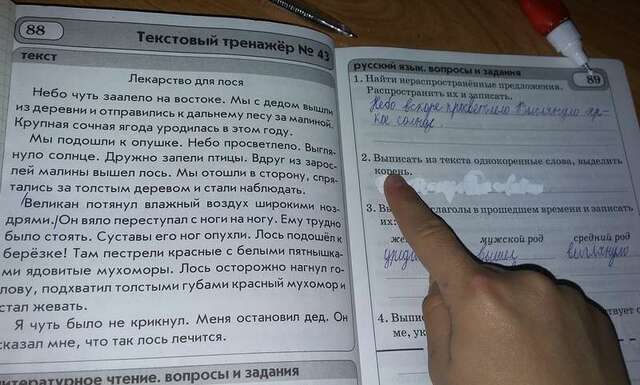 88
Текстовый тренажёр № 43
текст
Лекарство для лося
Небо чуть заалело на востоке. Мы с дедом вышли
из деревни и отправились к дальнему лесу за малиной.
Крупная сочная ягода уродилась в этом году.
Мы подошли к опушке. Небо просветлело. Выгля-
нуло солнце. Дружно запели птицы. Вдруг из зарос-
лей малины вышел лось. Мы отошли в сторону, спря-
тались за толстым деревом и стали наблюдать.
Великан потянул влажный воздух широкими ноз-
дрями. Он вяло переступал с ноги на ногу. Ему трудно
было стоять. Суставы его ног опухли. Лось подошёл к
берёзке! Там пестрели красные с белыми пятнышка-
ми ядовитые мухоморы. Лось осторожно нагнул го-
лову, подхватил толстыми губами красный мухомор и
стал жевать.
Я чуть было не крикнул. Меня остановил дед. Он
сказал мне, что так лось лечится.
литературное чтение. вопросы и задания
русский язык. вопросы и задания
89
1. Найти нераспространённые предложения.
Распространить их и записать.
Небо вскоре просветлело Выглянуло яр-
кое солнце.
2. Выписать из текста однокоренные слова, выделить
корень.
3. глаголы в прошедшем времени и записать
их:
мужской род
средний род
вышел
выглянуло
4.